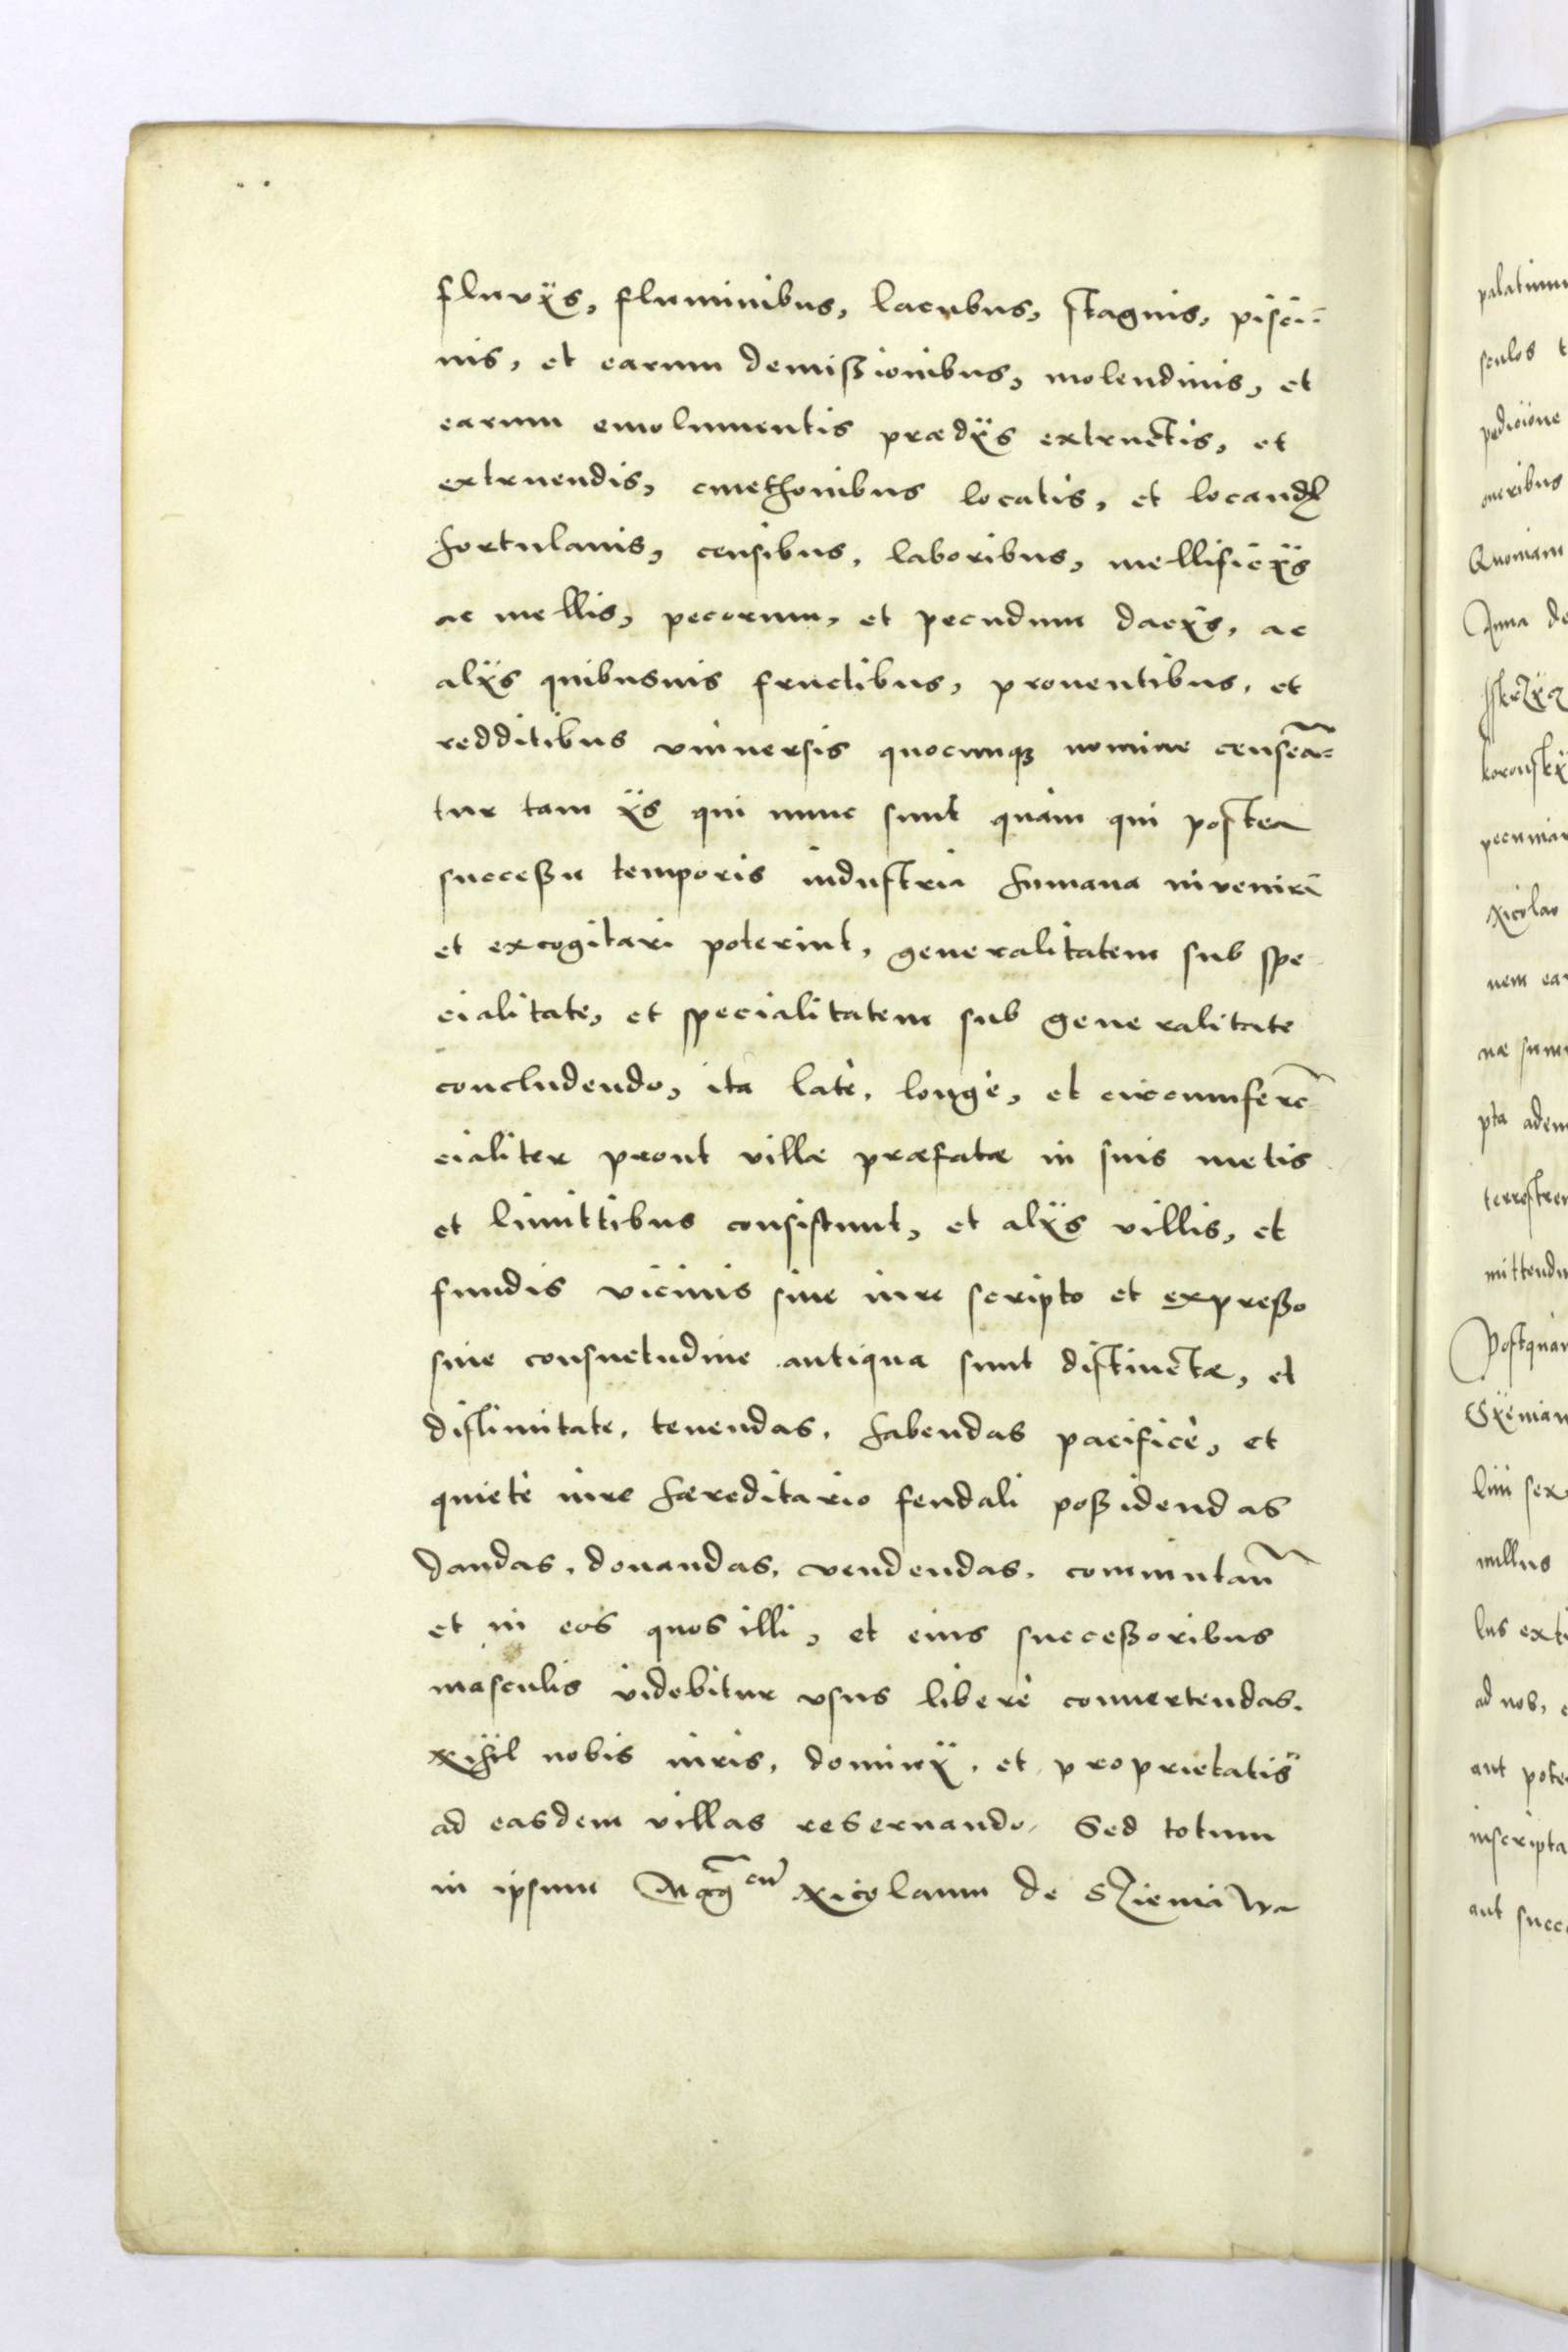 fluvÿs, fluminibus, lacubus, stagnis, pisci-
nis, et earum demißionibus, molendinis, et
earum emolumentis prædÿs extructis, et
extruendis, cmethonibus locatis, et locand
hortulanis, censibus, laboribus, mellificÿs
ac mellis, pecorum, et pecudum dacÿs, ac
alÿs quibusuis fructibus, prouentibus, et
redditibus vniuersis quocunq nomine censeã-
tur tam ÿs qui nunc sunt quàm qui postea
succeßu temporis industria humana inveniri
et excogitari poterint, generalitatem sub spe-
cialitate, et specialitatem sub generalitate
concludendo, ita latè, longè, et circumferē-
cialiter prout villæ præfatæ in suis metis
et limittibus consistunt, et alÿs villis, et
fundis vicinis siue iure scripto et expreßo
siue consuetudine antiqua sunt distinctæ, et
dislimitate, tenendas, habendas pacificè, et
quietè iure hæreditario feudali poßidendas
dandas, donandas, vendendas, commutañ
et in eos quos illi, et eius succeßoribus
masculis videbitur vsus liberè conuertendas.
Nihil nobis iuris, dominÿ, et proprietatis
ad easdem villas reseruando, Sed totum
in ipsum Mag̃cũ Nicolaum de Szieniawa
palatinum
seulos t
oneribus
Quoniam
Anna de
pecuniar
Nicolao
nem ear
næ sum
pta adem
terrestrem
mittendu
Postquàm
Sÿeniaw
liui sex
nullus
lus exti
ad nob,
aut pote
inscripta
aut succe